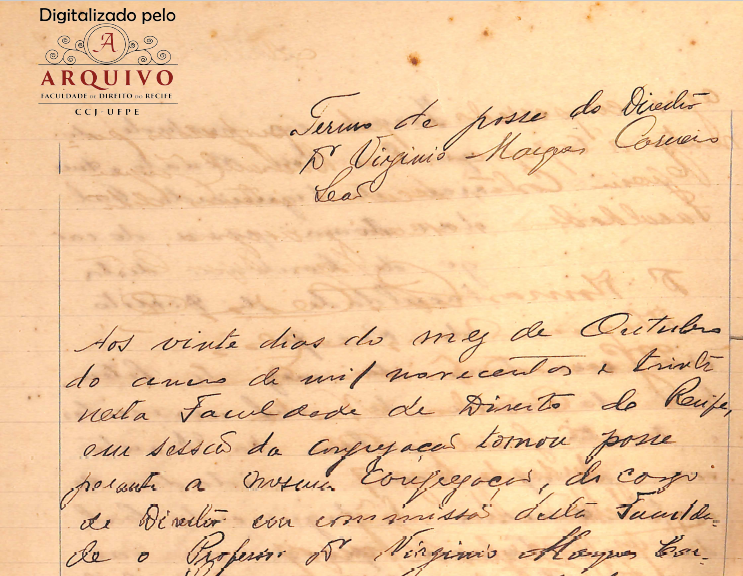 Digitalizado pelo
A
ARQUIVO
FACULDADE DE DIREITO DO RECIFE
CCJ-UFPE
Termo de posse do Director
Dr Virginio Marques Carneiro
Leão
Aos vinte dias do mez de Outubro
do anno de mil novecentos e trinta
nesta Faculdade de Direito do Recife,
em sessão da Congregação tomou posse
perante a mesma Congregação, do cargo
de Director em commissão desta Faculda-
de o Professor Dr Virginio Marques Car-